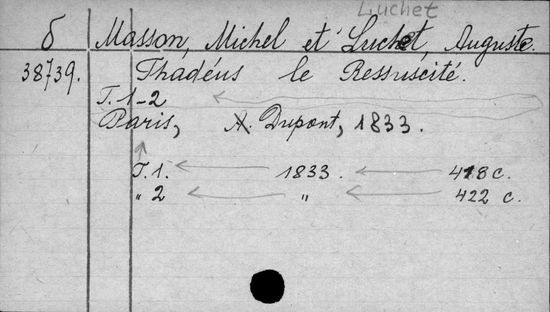 Luchet
б Masson, Michel et Luchet, Auguste.
38739. Thadéus le Ressuscité.
T. 1-2
Paris, A. Dupont, 1833.
T. 1. 1833. 418 c.
„ 2 „ 422 c.